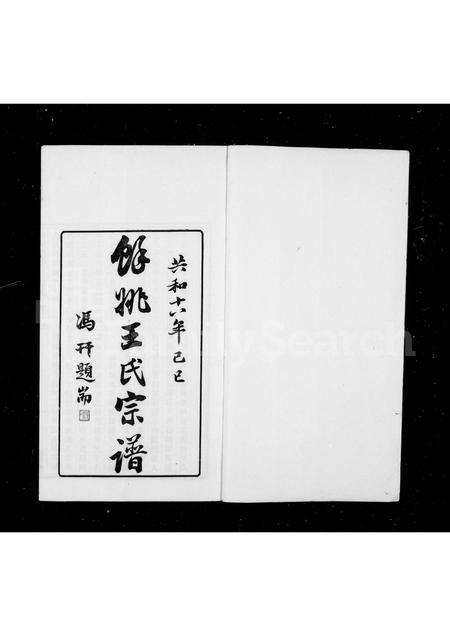 共和十八年己巳
餘姚王氏宗譜
馮幵題耑
FamilySearch